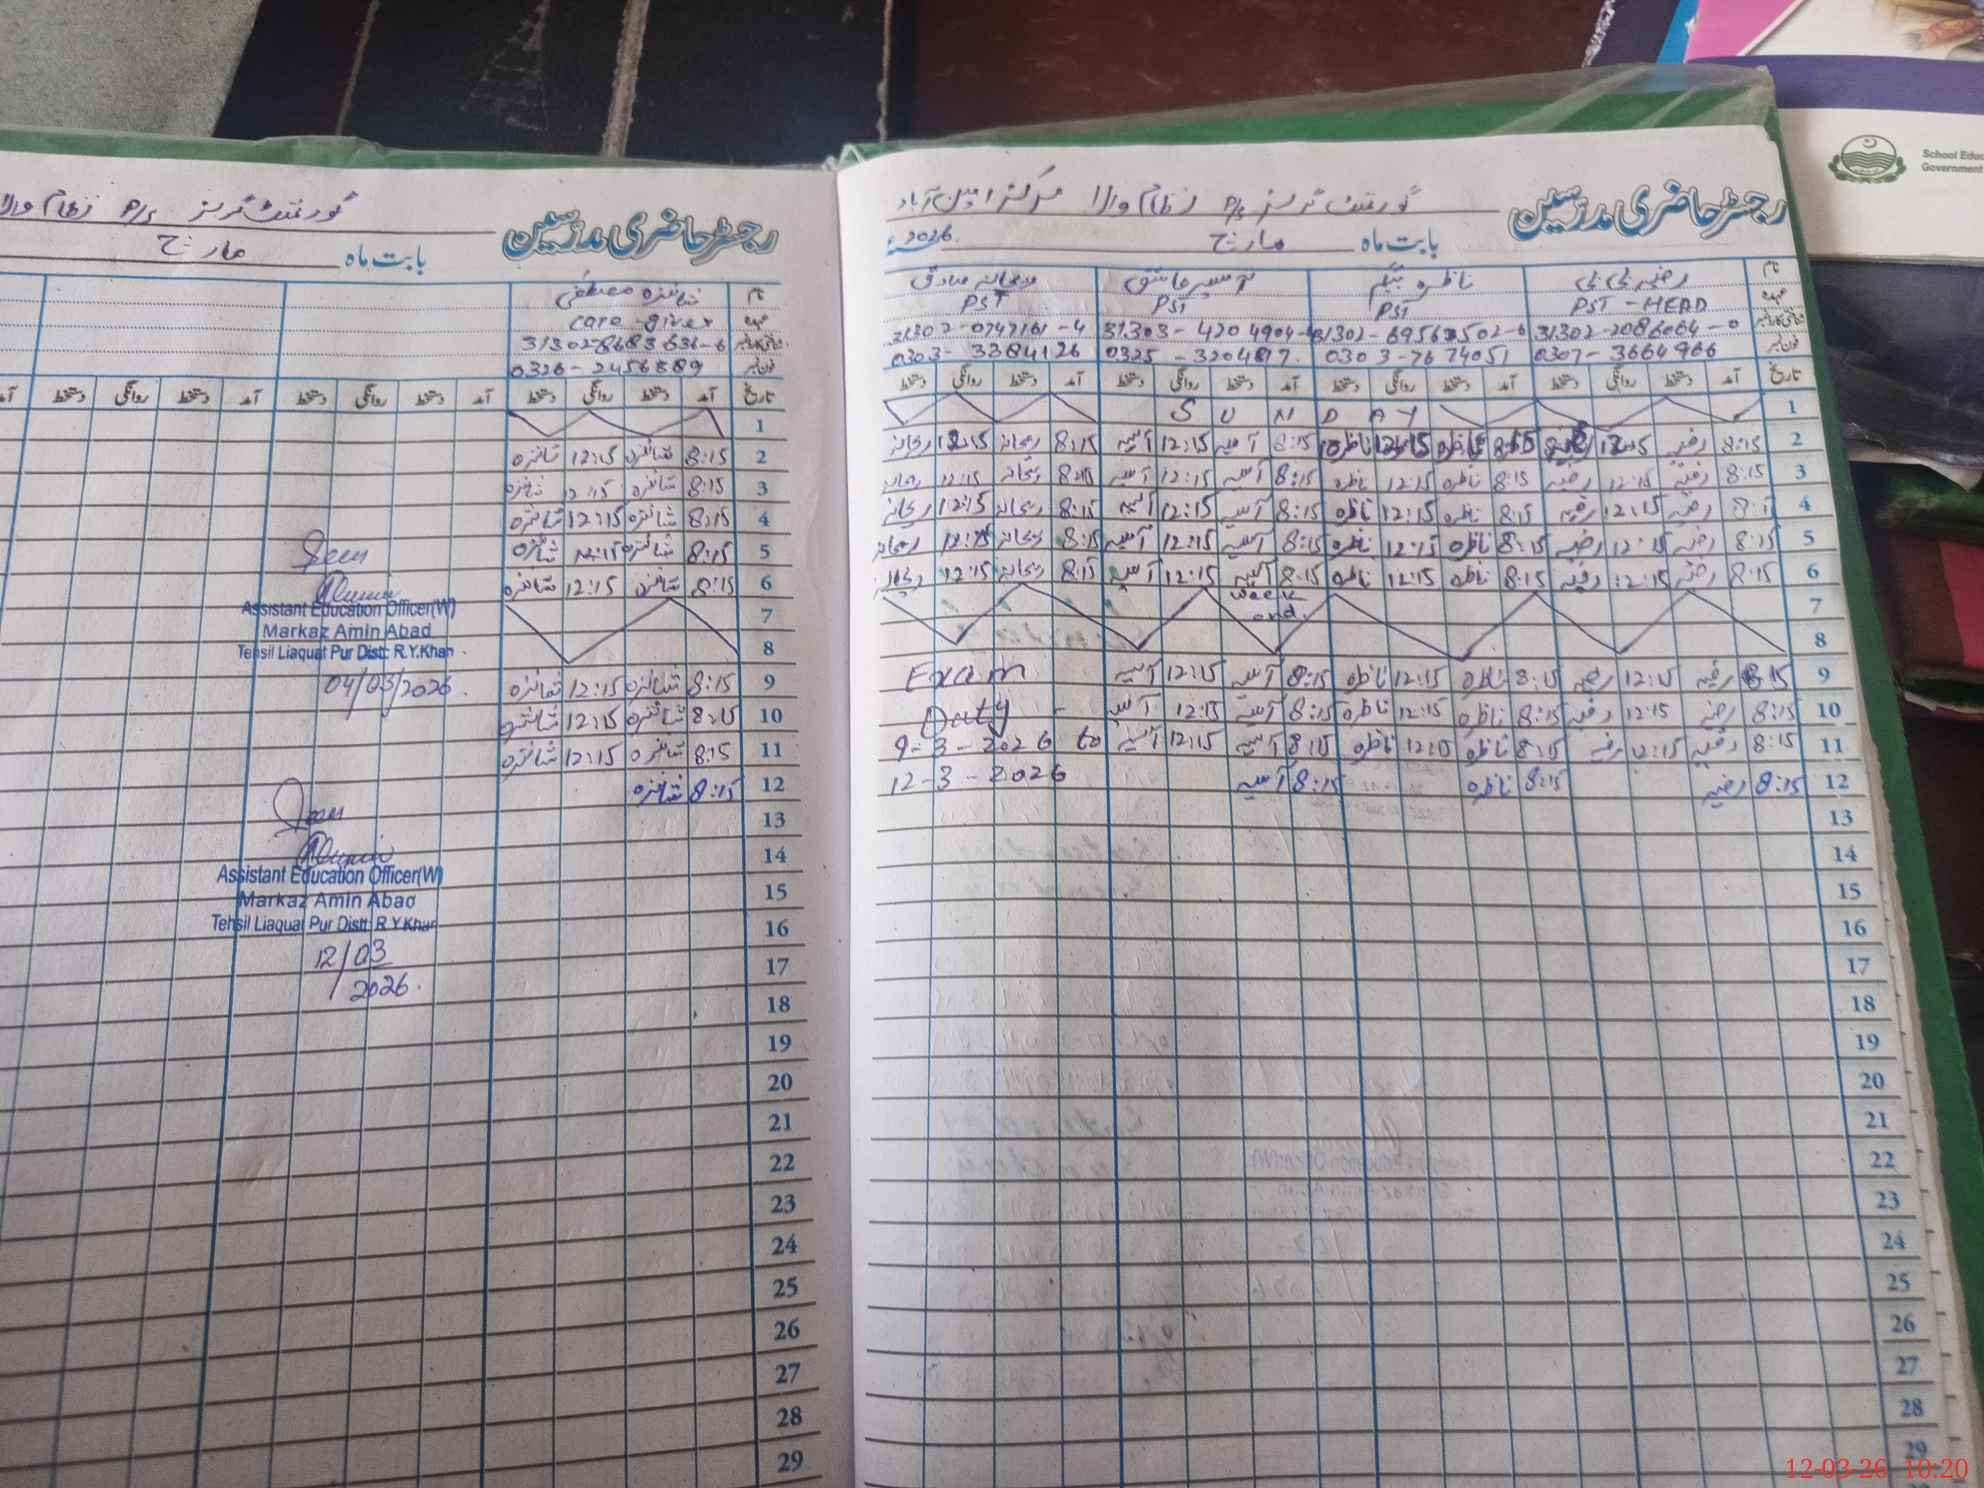 رجسٹر حاضری مدرسین
گورنمنٹ گرلز P/S نظام والا
بابت ماہ مارچ
نام شائزہ مصطفی
عہدہ care-giver
31302-8683636-6
0326-2456889
تاریخ آمد دستخط روانگی دستخط آمد دستخط روانگی دستخط آمد دستخط روانگی دستخط آمد
1
2 8:15 شائزہ 12:15 شائزہ
3 8:15 شائزہ 12:15 شائزہ
4 8:15 شائزہ 12:15 شائزہ
5 8:15 شائزہ 12:15 شائزہ
6 8:15 شائزہ 12:15 شائزہ
7
8
9 8:15 شائزہ 12:15 شائزہ
10 8:15 شائزہ 12:15 شائزہ
11 8:15 شائزہ 12:15 شائزہ
12 8:15 شائزہ
13
14
15
16
17
18
19
20
21
22
23
24
25
26
27
28
29
Seen
Assistant Education Officer(W)
Markaz Amin Abad
Tehsil Liaquat Pur Distt: R.Y.Khan
04/03/2026.
Seen
Assistant Education Officer(W)
Markaz Amin Abad
Tehsil Liaquat Pur Distt: R.Y.Khan
12/03
2026.
رجسٹر حاضری مدرسین
گورنمنٹ گرلز P/S نظام والا مرکز امین آباد
بابت ماہ مارچ 2026ء
نام رضیہ بی بی ناظرہ بیگم آسیہ عاشق ریحانہ صادق
عہدہ PST-HEAD PST PST PST
31302-2086064-0 31302-69563502-6 31303-4204904-4 31302-0747161-4
0307-3664966 0303-7674051 0325-3204817. 0303-3384126
تاریخ آمد دستخط روانگی دستخط آمد دستخط روانگی دستخط آمد دستخط روانگی دستخط آمد دستخط روانگی دستخط
1 SUNDAY
2 8:15 رضیہ 12:15 8:15 ناظرہ 12:15 ناظرہ 8:15 آسیہ 12:15 آسیہ 8:15 ریحانہ 12:15 ریحانہ
3 8:15 رضیہ 12:15 رضیہ 8:15 ناظرہ 12:15 ناظرہ 8:15 آسیہ 12:15 آسیہ 8:15 ریحانہ 12:15 ریحانہ
4 رضیہ 12:15 رضیہ 8:15 ناظرہ 12:15 ناظرہ 8:15 آسیہ 12:15 آسیہ 8:15 ریحانہ 12:15 ریحانہ
5 8:15 رضیہ 12:15 رضیہ 8:15 ناظرہ 12:15 ناظرہ 8:15 آسیہ 12:15 آسیہ 8:15 ریحانہ 12:15 ریحانہ
6 8:15 رضیہ 12:15 رضیہ 8:15 ناظرہ 12:15 ناظرہ 8:15 آسیہ 12:15 آسیہ 8:15 ریحانہ 12:15 ریحانہ
7 week end.
8
9 8:15 رضیہ 12:15 رضیہ 8:15 ناظرہ 12:15 ناظرہ 8:15 آسیہ 12:15 آسیہ Exam
10 8:15 رضیہ 12:15 رضیہ 8:15 ناظرہ 12:15 ناظرہ 8:15 آسیہ 12:15 آسیہ Duty -
11 8:15 رضیہ 12:15 رضیہ 8:15 ناظرہ 12:15 ناظرہ 8:15 آسیہ 12:15 آسیہ 9-3-2026 to
12 8:15 رضیہ 8:15 ناظرہ 8:15 آسیہ 12-3-2026
13
14
15
16
17
18
19
20
21
22
23
24
25
26
27
28
29
School Educ
Government
12-03-26 10:20